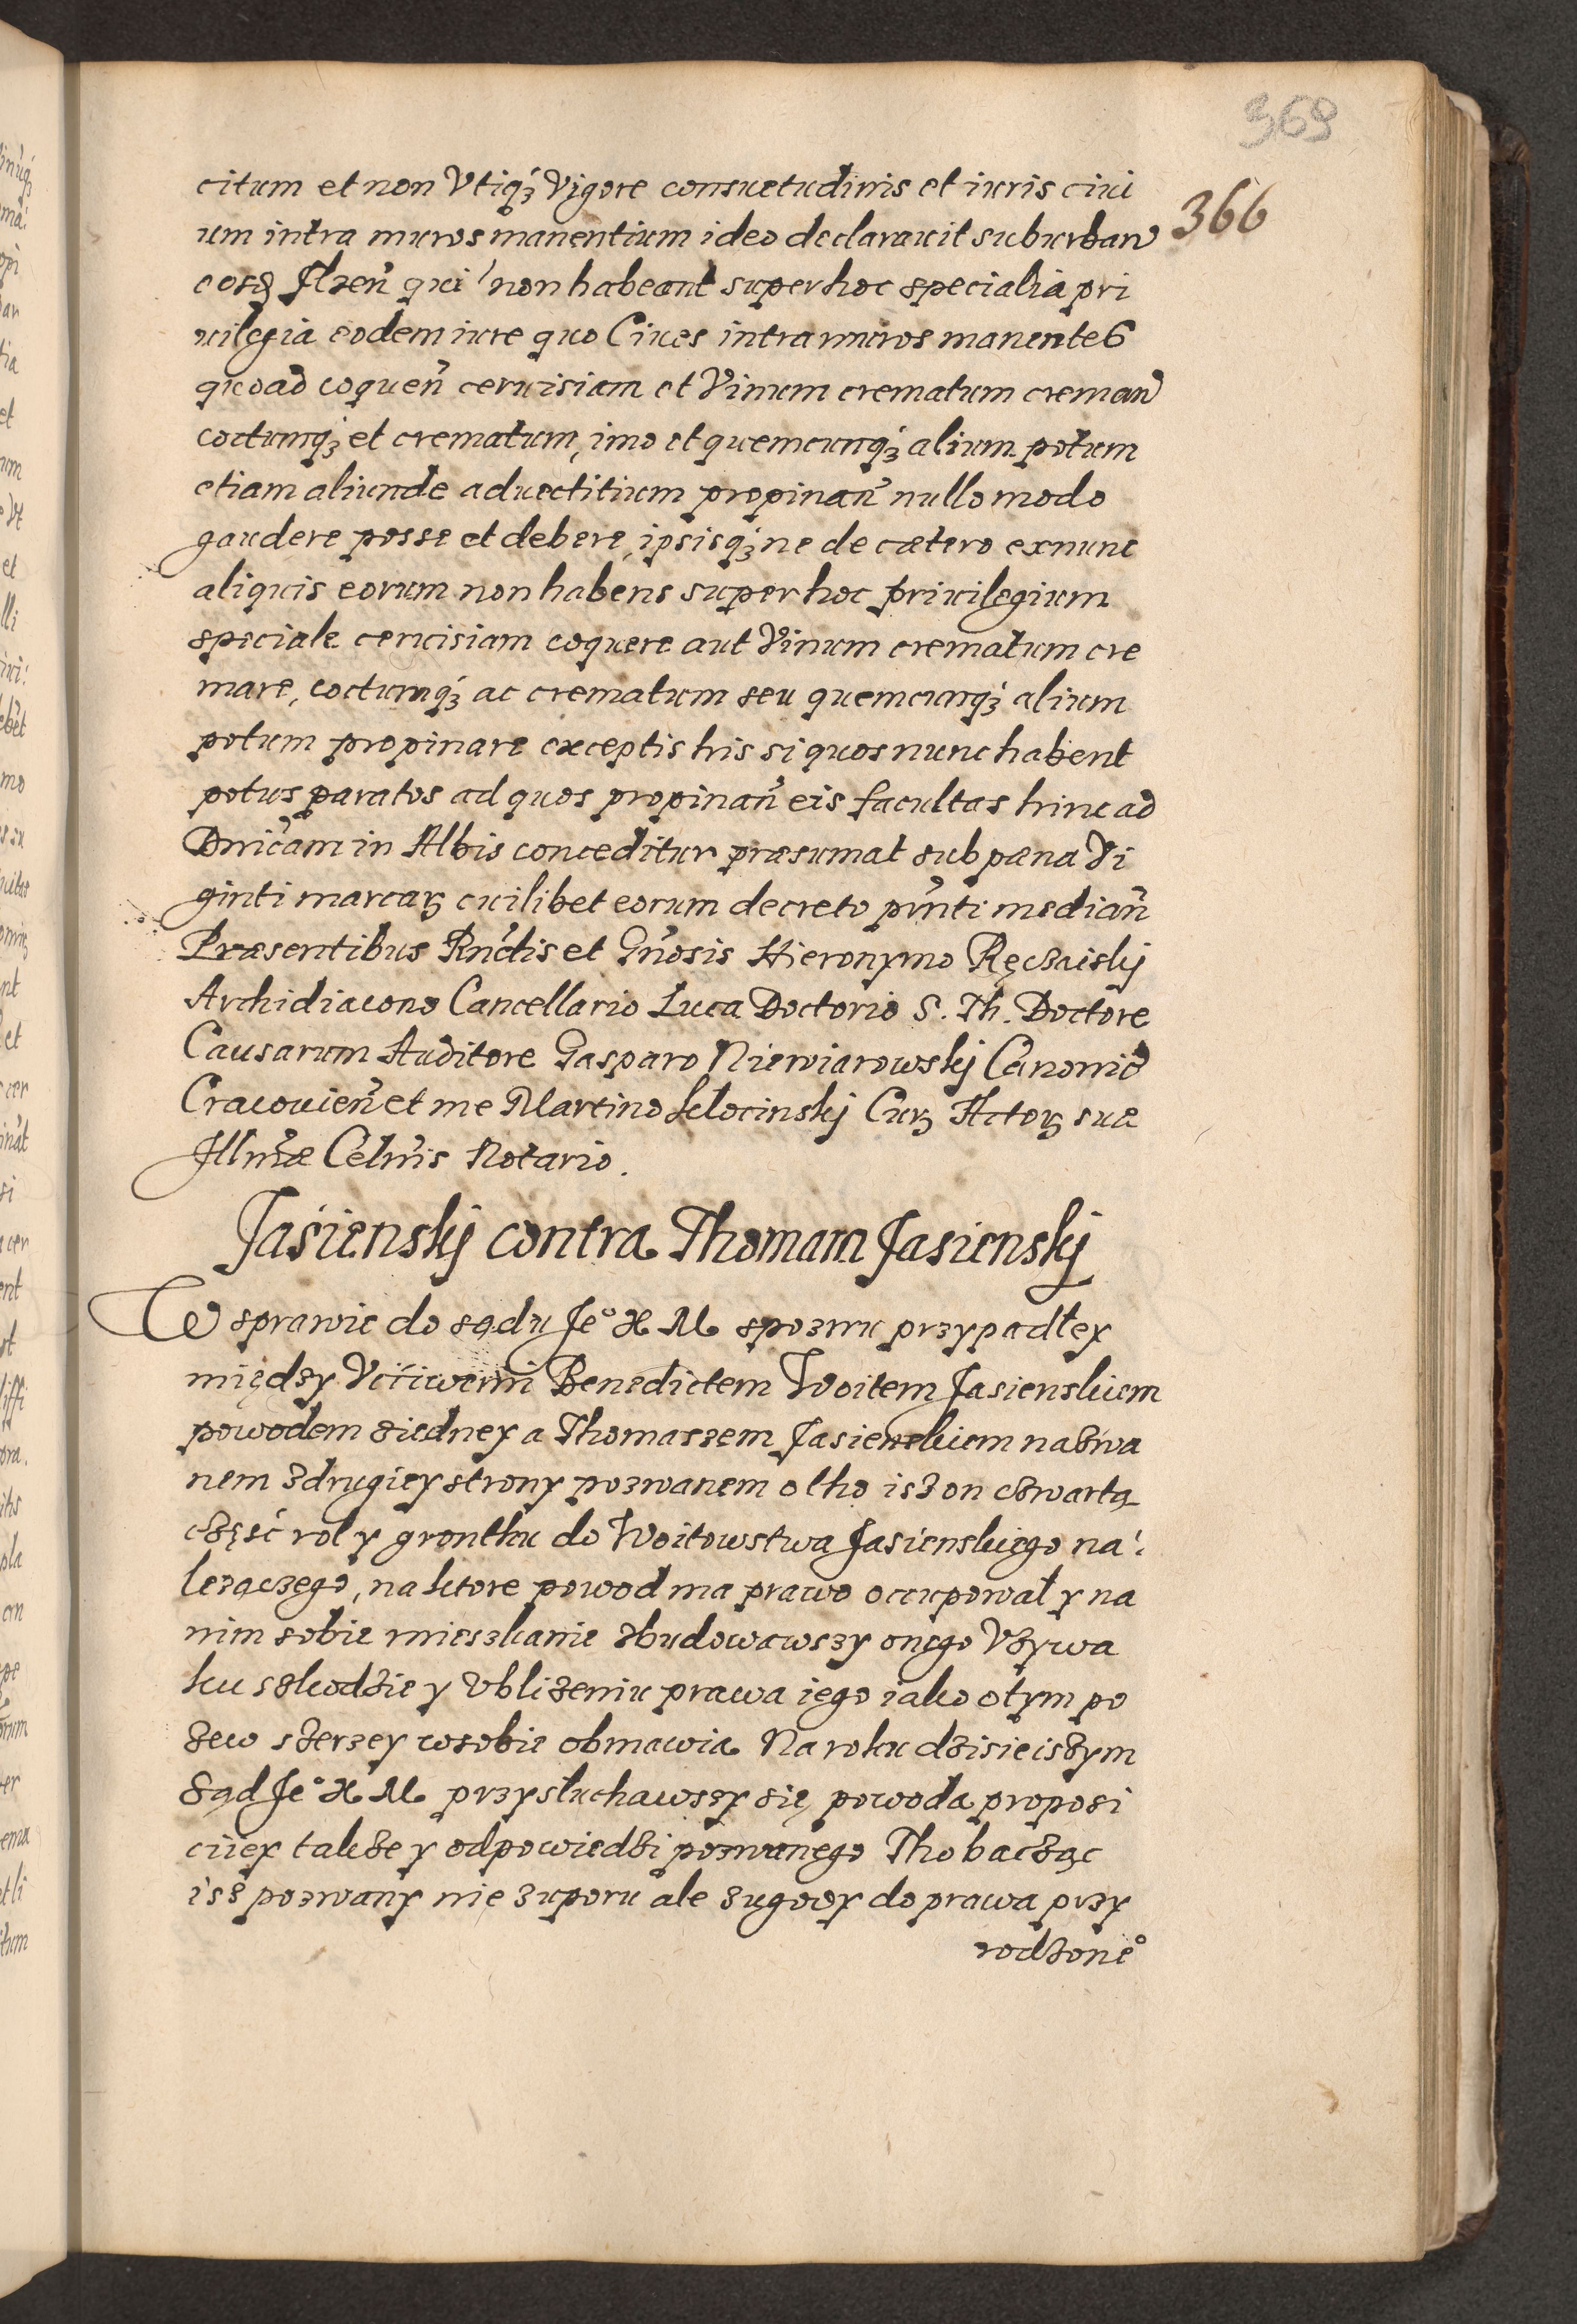 369
366
citum et non Vtiqȝ Vigore consuetudinis et iuris ciui
um intra muros manentium ideo declarauit suburban
eosq Ilzen̄ qui non habeant super hoc specialia pri
uilegia eodem iure quo Ciues intra muros manentes
quoad coquen̄ ceruisiam et Vinum crematum creman
coctumqȝ et crematum, imo et quemcunqȝ alium potum
etiam aliunde aduectitium propinan̄ nullo modo
gaudere posse et debere, ipsisqȝ ne de cætero ex nunc
aliquis eorum non habens super hoc priuilegium
speciale ceruisiam coquere aut Vinum crematum cre
mare, coctumqȝ ac crematum seu quemcunqȝ alium
potum propinare exceptis his si quos nunc habent
potus paratos ad quos propinan̄ eis facultas hinc ad
Dnicam in Albis conceditur præsumat sub pæna Vi
ginti marcaꝝ cuilibet eorum decreto pn̄ti median̄
Præsentibus Rndis et Gn̄osis Hieronymo Ręczaiskj
Archidiacono Cancellario Luca Doctorio S. Th. Doctore
Causarum Auditore Gasparo Niewiarowskj Canonic
Cracouien̄ et me Martino Klocinskj Cuꝝ Actoꝝ suæ
Illmæ Celnis Notario.
Jasienskj contra Thomam Jasienskj
W sprawie do sądu Je° X M spozwu przypadłey
między Vććiwemi Benedictem Woitem Jasienskiem
powodem ziedney a Thomaszem Jasienskiem nazwa
nem zdrugiey strony pozwanem o tho isz on czwartą
część roly gronthu do Woitowstwa Jasienskiego na
lezączego, na ktore powod ma prawo occupował y na
nim sobie mieszkanie zbudowawszy onego Vzywa
ku szkodzie y Vblizeniu prawa iego iako o tym po
zew szerzey wsobie obmawia Na roku dzisieiszym
Sąd Je° X M przysłuchawszy się powoda proposi
ciiey takze y odpowiedzi pozwanego Tho bacząc
isz pozwany nie zuporu ale zugody do prawa przy
rodzone°